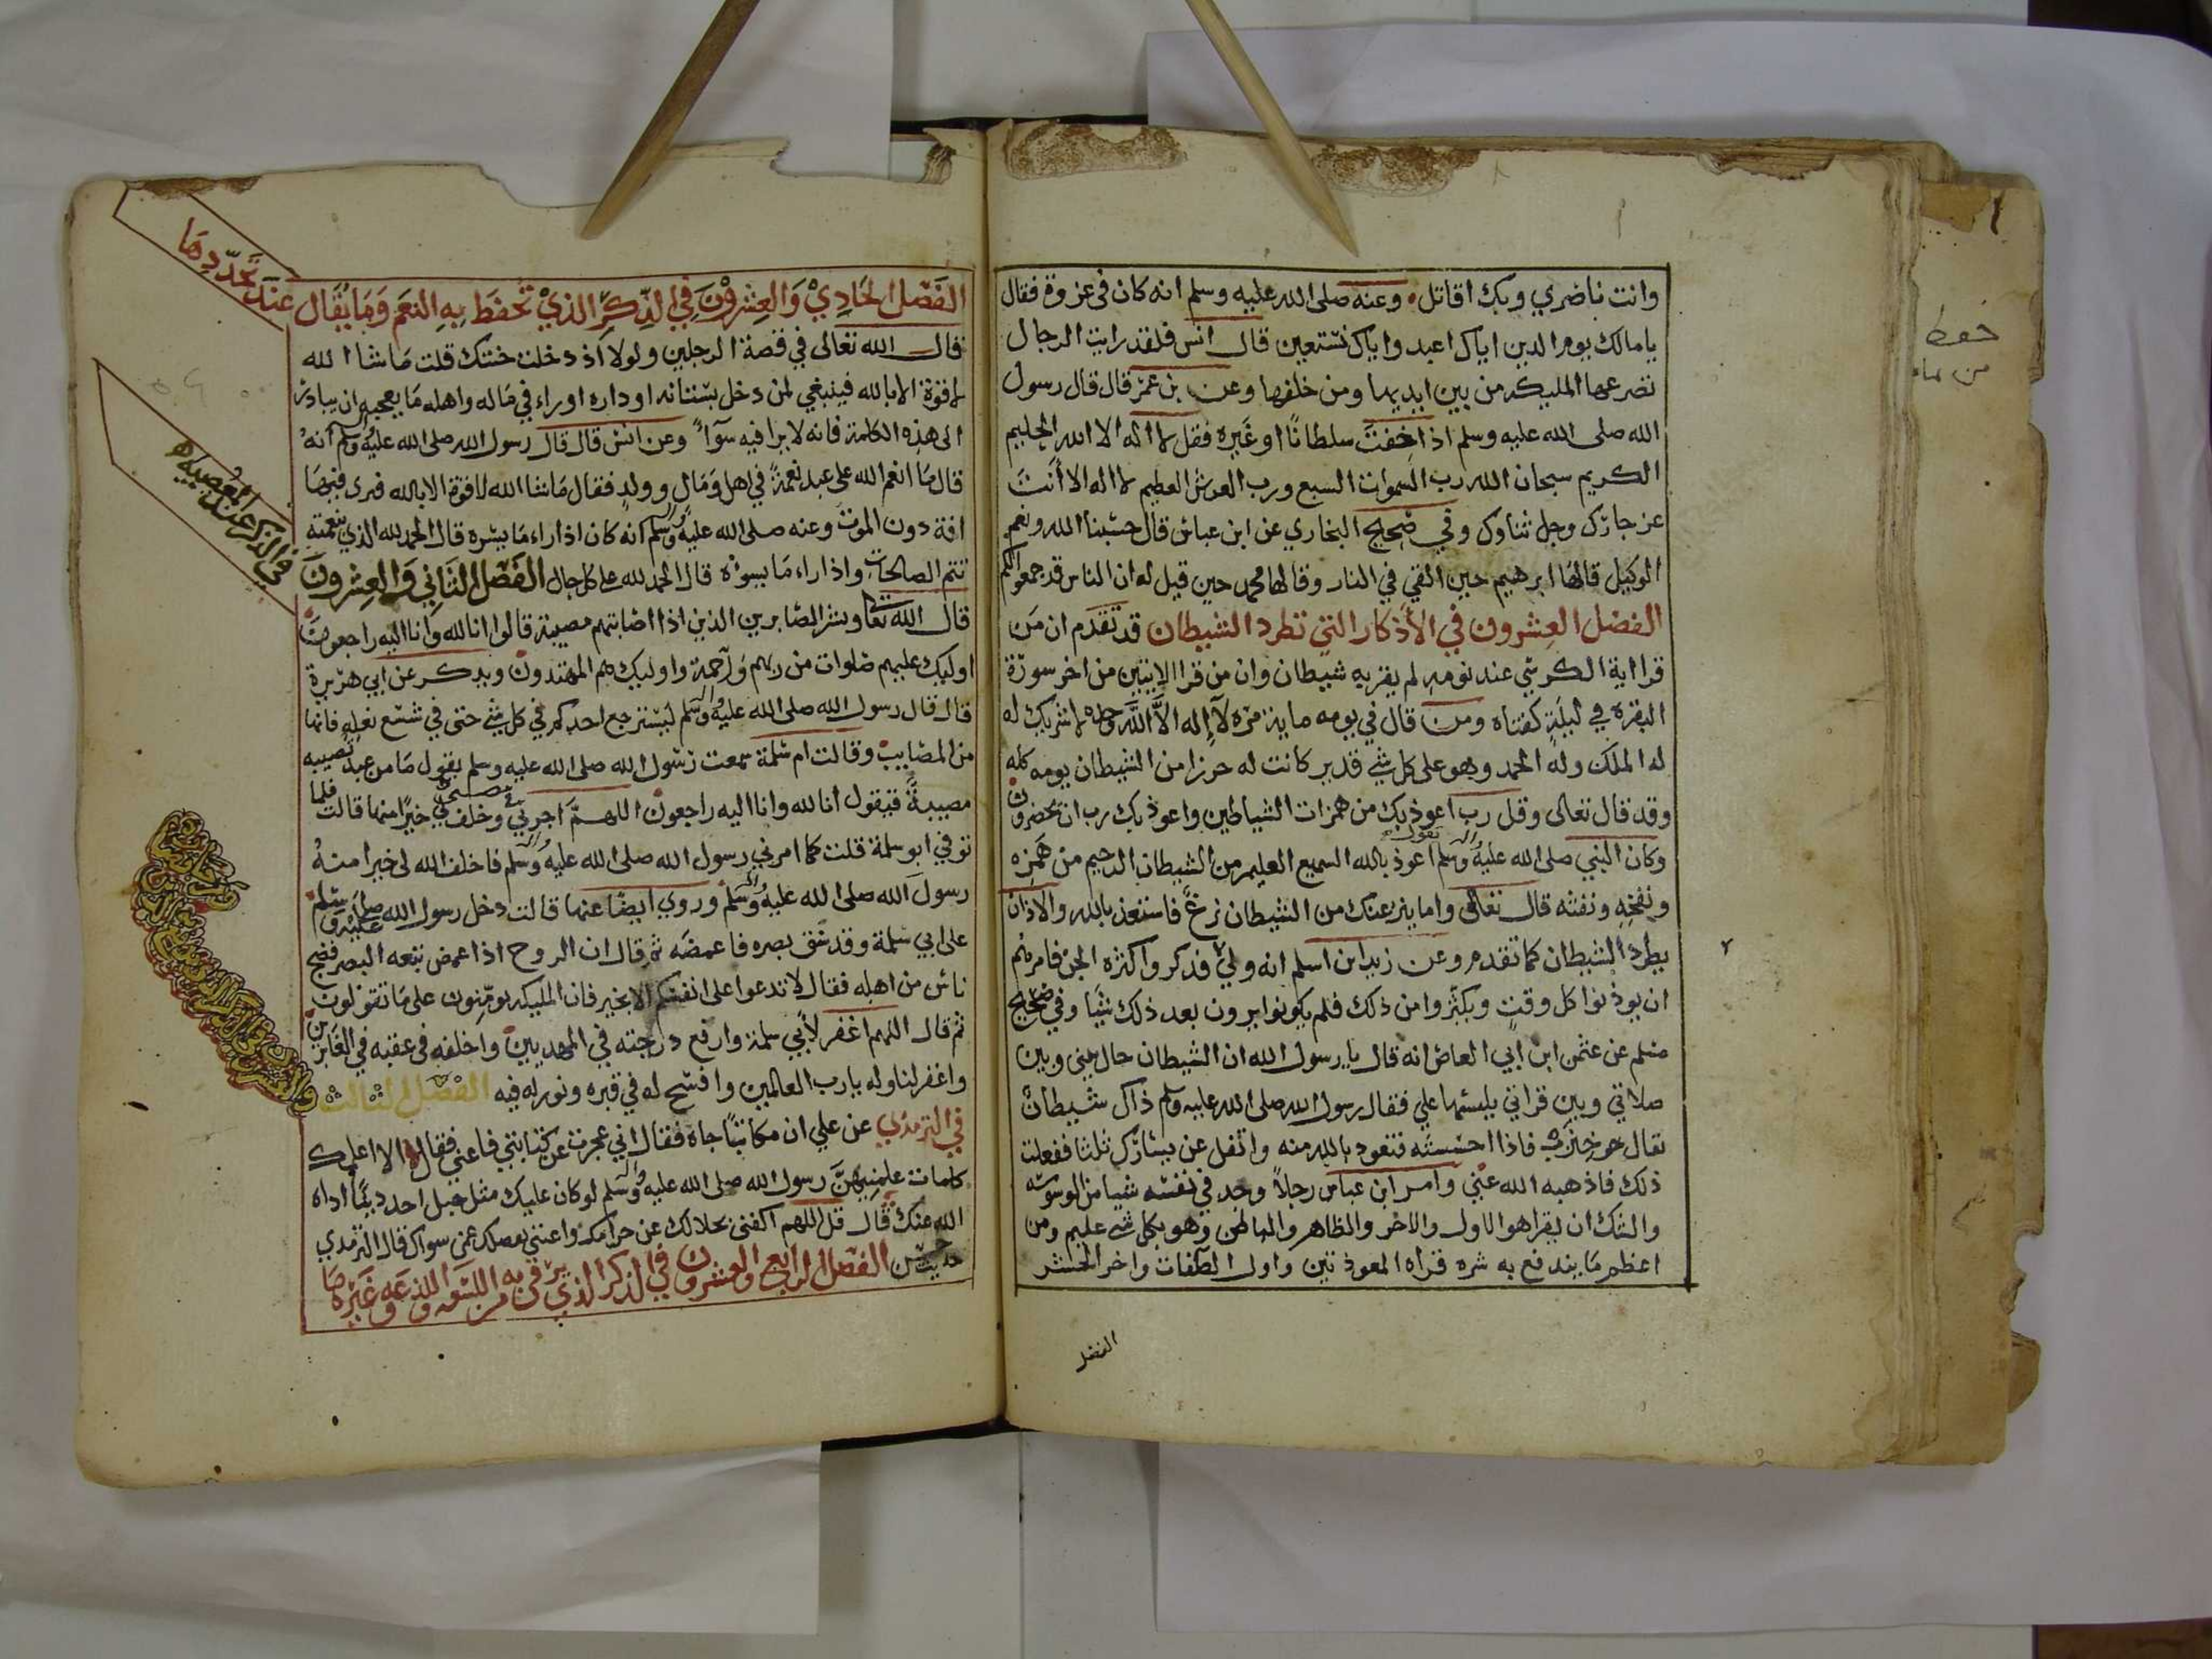 وانت ناصري وبك اقاتل وعنه صلى الله عليه وسلم انه كان في غزوة فقال
يا مالك يوم الدين اياك اعبد واياك نستعين قال انس فلقد رايت الرجال
تصرعها المليكه من بين ايديها ومن خلفها وعن بن عمر قال قال رسول
الله صلى الله عليه وسلم اذا خفت سلطانًا او غيره فقل لا اله الا الله الحليم
الكريم سبحان الله رب السموات السبع ورب العرش العظيم لا اله الا أنت
عز جارك وجل ثناوك وفي صحيح البخاري عن ابن عباس قال حسبنا الله ونعم
الوكيل قالها ابرهيم حين القي في النار وقالها محمد حين قيل له ان الناس قد جمعوا لكم
الفصل العشرون في الأذكار التي تطرد الشيطان قد تقدم ان من
قرا اية الكرسي عند نومه لم يقربه شيطان وان من قرا الايتين من اخر سورة
البقره في ليلةٍ كفتاه ومن قال في يومه ماية مره لا إله الا الله وحده لا شريك له
له الملك وله الحمد وهو على كل شي قدير كانت له حرزا من الشيطان يومه كله
وقد قال تعالى وقل رب اعوذ بك من همزات الشياطين واعوذ بك رب ان يحضرون
وكان النبي صلى الله عليه واله وسلم يقول اعوذ بالله السميع العليم من الشيطان الرجيم من همزه
ونفخه ونفثه قال تعالى واما ينزغنك من الشيطان نزغٌ فاستعذ بالله والاذان
يطرد الشيطان كما تقدم وعن زيد ابن اسلم انه ولي فذكروا كثرة الجن فامرهم
ان يوذنوا كل وقتٍ ويكثروا من ذلك فلم يكونوا يرون بعد ذلك شيًا وفي صحيح
مسلم عن عثمن ابن ابي العاص انه قال يا رسول الله ان الشيطان حال بيني وبين
صلاتي وبين قراتي يلبسها علي فقال رسول الله صلى الله عليه وسلم ذاك شيطان
يقال هو خنزب فاذا احسسته فتعوذ بالله منه واتفل عن يسارك ثلثا ففعلت
ذلك فاذهبه الله عني وامر ابن عباس رجلاً وجد في نفسه شيا من الوسوسه
والشك ان يقرا هو الاول والاخر والظاهر والباطن وهو بكل شي عليم ومن
اعظم ما يندفع به شره قراه المعوذتين واول الصافات واخر الحشر
الفصل
الفصل الحادي والعشرون في الذكر الذي تحفظ به النعم وما يقال عند تجددها
قال الله تعالى في قصة الرجلين ولولا اذ دخلت جنتك قلت ما شا الله
لا قوة الا بالله فينبغي لمن دخل بستانه او داره او راء في ماله واهله ما يعجبه ان يبادر
الى هذه الكلمة فانه لا يرا فيه سوآءً وعن انس قال قال رسول الله صلى الله عليه واله وسلم انه
قال ما انعم الله على عبد نعمةً في اهل ومال وولدٍ فقال ما شا الله لا قوة الا بالله فيرى فيها
افة دون الموت وعنه صلى الله عليه واله وسلم انه كان اذا راء ما يسره قال الحمد لله الذي بنعمته
تتم الصالحات واذا راء ما يسوه قال الحمد لله على كل حال الفصل الثاني والعشرون
في الذكر عند المصيبه
قال الله تعا وبشر الصابرين الذين اذا اصابتهم مصيبة قالوا انا لله وانا اليه راجعون
اوليك عليهم صلوات من ربهم ورحمة واوليك هم المهتدون ويذكر عن ابي هريرة
قال قال رسول الله صلى الله عليه واله وسلم ليسترجع احدكم في كل شي حتى في شسع نعله فانها
من المصايب وقالت ام سلمة سمعت رسول الله صلى الله عليه وسلم يقول ما من عبد تصيبه
مصيبةً فيقول انا لله وانا اليه راجعون اللهم اجرني في مصيبتي وخلف لي خيرًا منها قالت فلما
توفي ابو سلمة قلت كما امرني رسول الله صلى الله عليه واله وسلم فاخلف الله لي خيرا منهُ
رسول الله صلى الله عليه واله وسلم وروي ايضًا عنها قالت دخل رسول الله صلى الله عليه وسلم
على ابي سلمة وقد شق بصره فاغمضه ثم قال ان الروح اذا عمض تبعه البصر فضج
ناس من اهله فقال لا تدعوا على انفسكم الا بخير فان المليكه يومنون على ما تقولون
ثم قال اللهم اغفر لأبي سلمة وارفع درجته في المهديين واخلفه في عقبه في الغابرين
واغفر لنا وله يا رب العالمين وافسح له في قبره ونور له فيه الفصل الثالث
والعشرون في الذكر
في الترمذي عن علي ان مكاتبًا جاه فقال اني عجزت عن كتابتي فاعني فقال الا اعلمك
كلمات علمنيهن رسول الله صلى الله عليه واله وسلم لو كان عليك مثل جبل احد دينًا اداه
الله عنك قال قل اللهم اكفني بحلالك عن حرامك واغنني بفضلك عمن سواك قال الترمذي
حديث حسن الفصل الرابع والعشرون في الذكر الذي يرقى به من اللسعه واللذعه وغيرها